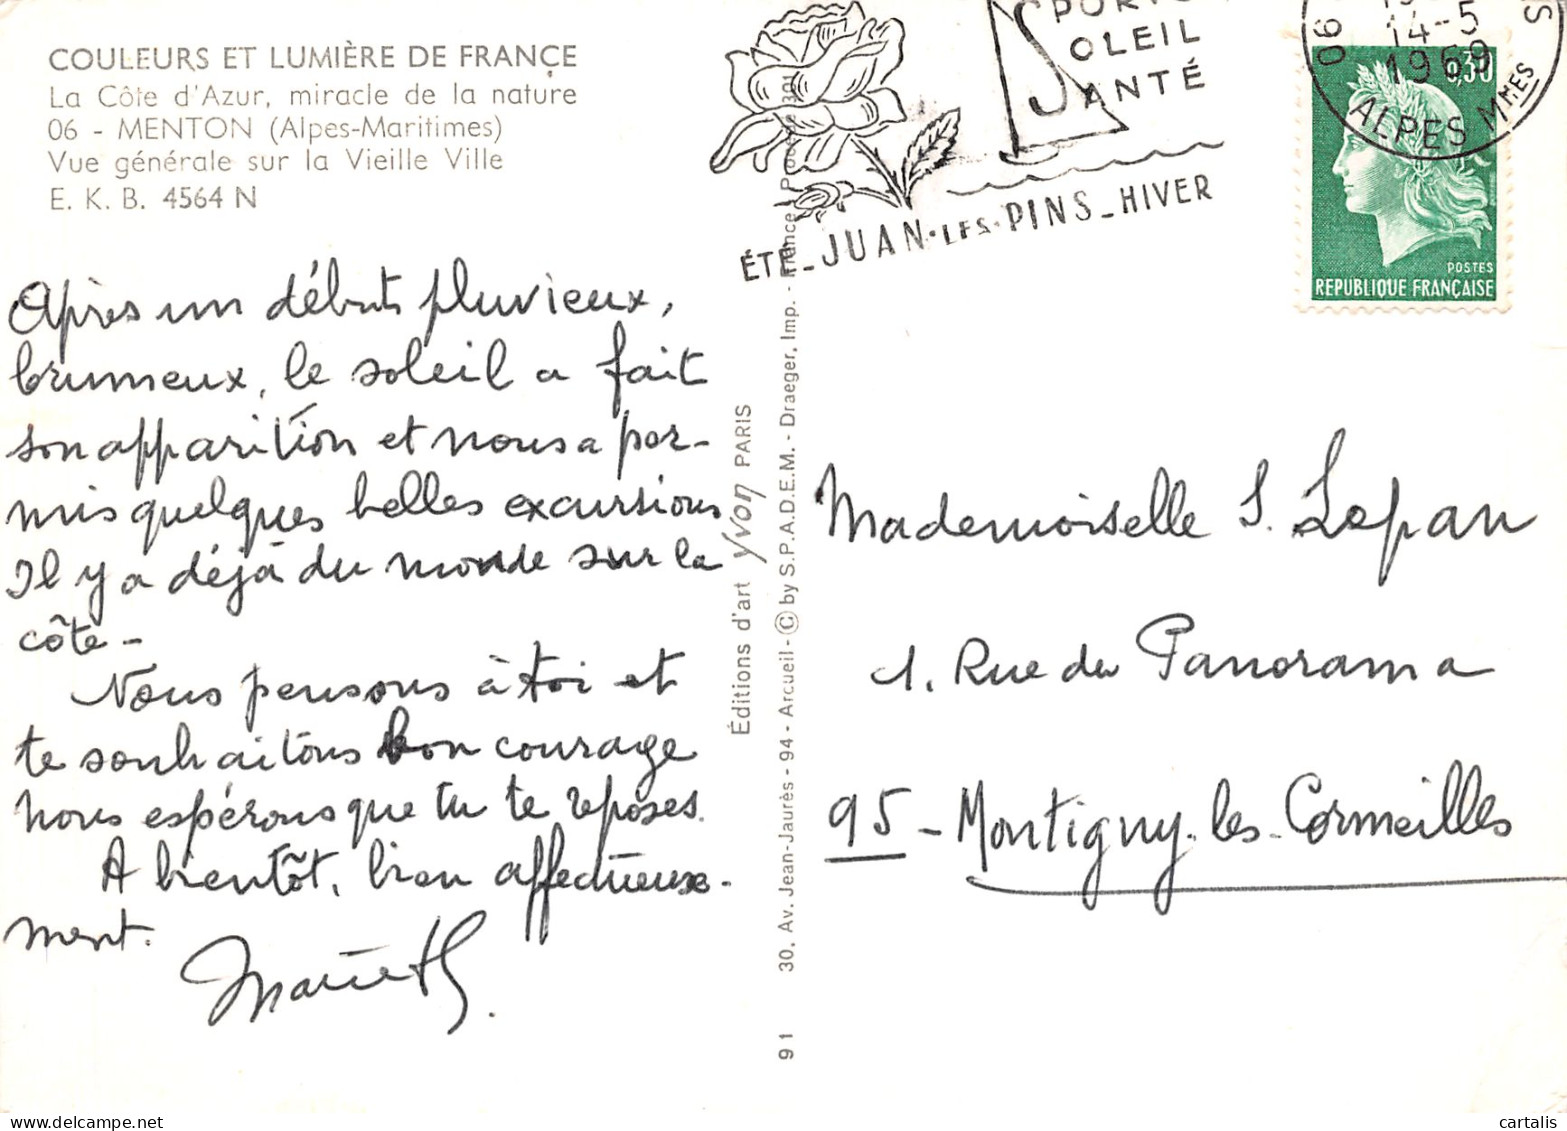 COULEURS ET LUMIÈRE DE FRANCE
La Côte d'Azur, miracle de la nature
06 - MENTON (Alpes-Maritimes)
Vue générale sur la Vieille Ville
E. K. B. 4564 N
Après un débuts pluvieux,
brumeux, le soleil a fait
son apparition et nous a per-
mis quelques belles excursions
Il y a déjà du monde sur la
côte -
Nous pensons à toi et
te souhaitons bon courage
nous espérons que tu te reposes.
A bientôt, bien affectueuse-
ment.
SPORTS
SOLEIL
SANTÉ
ÉTÉ_JUAN·LES·PINS_HIVER
14-5
1969
06 ALPES MMES
0,30
POSTES
REPUBLIQUE FRANÇAISE
Éditions d'art Yvon PARIS
30, Av. Jean-Jaurès - 94 - Arcueil - © by S.P.A.D.E.M. - Draeger, Imp. - France
91
Mademoiselle S. Lepan
1. Rue du Panorama
95 - Montigny-les-Cormeilles
cartalis